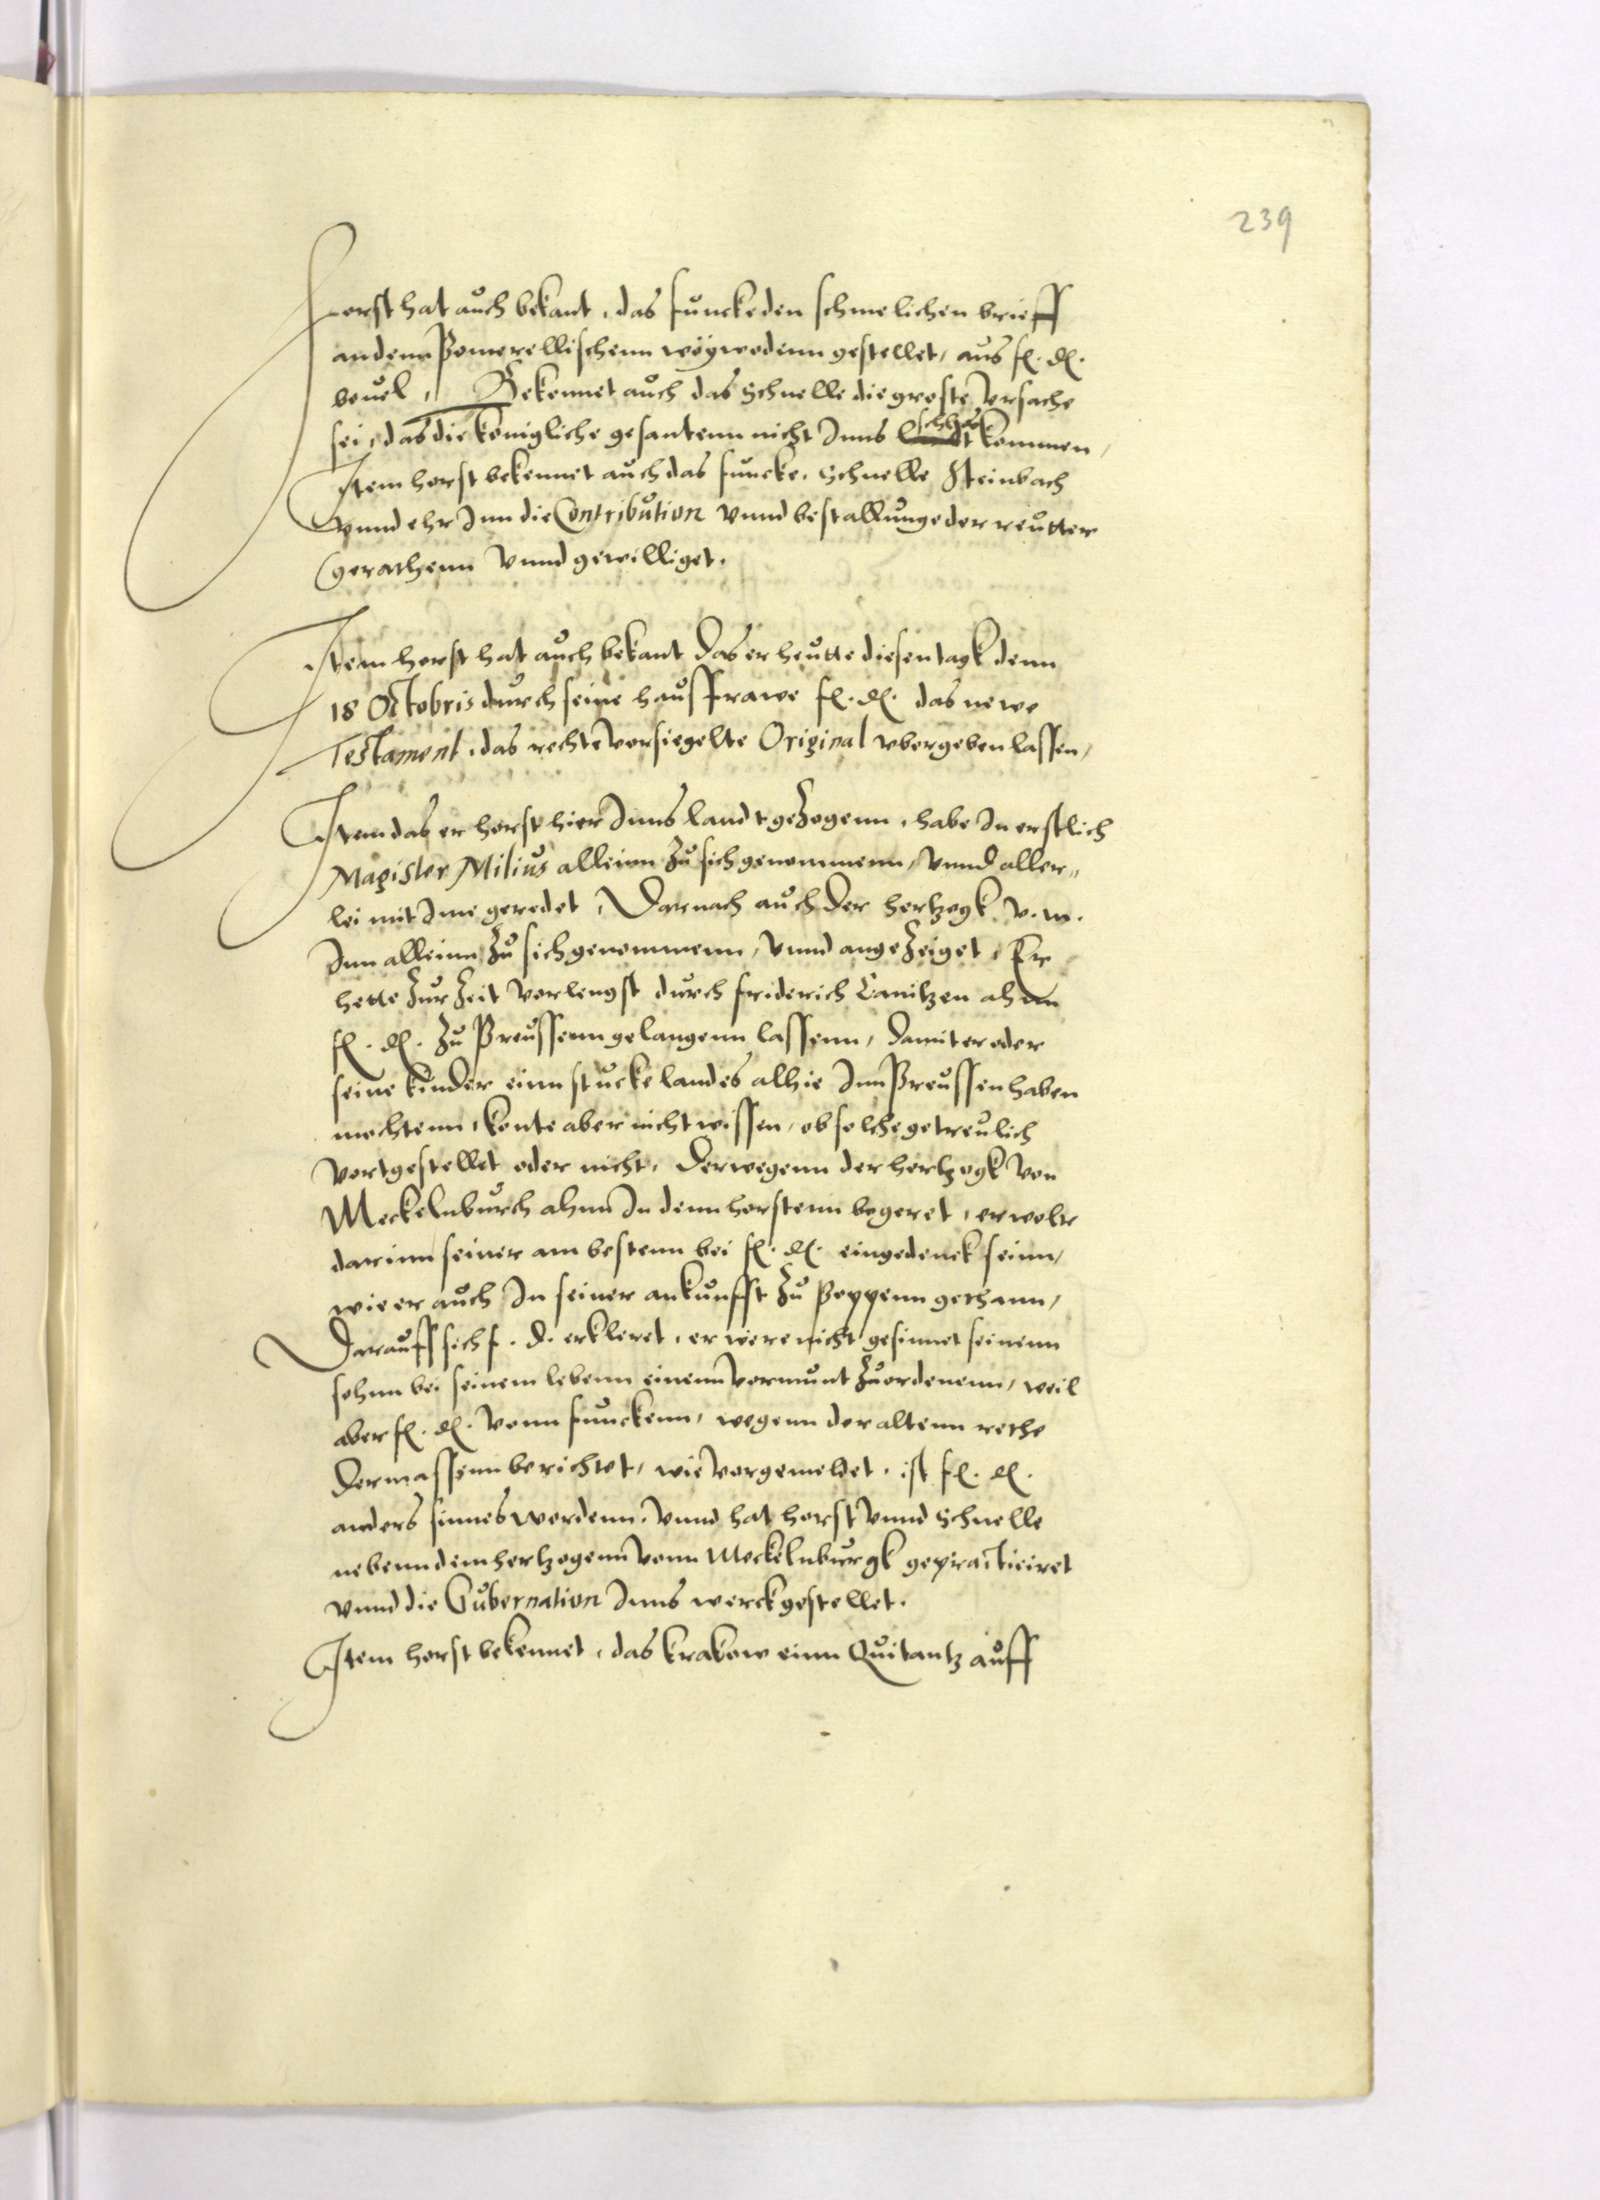 239
Horst hat auch bekant, das Funcke den schmelichen brieff
an denn Pomerellischenn woywodenn gestellet, aus f. d.
bevel, Bekennet auch das Schnelle die groste Vrsache
sei, das die königliche gesantenn nicht Inns kommen,
Item horst bekennet auch das Funcke, Schnelle Steinbach
vnnd ehr Inn die Contribution vnnd bestallunge der reutter
gerathenn vnnd gewilliget.
Item horst hat auch bekant das er heutte diesen tagk denn
18 Octobris durch seine hausfrawe f. d. das newe
Testament, das rechte versiegelte Original vbergeben lassen,
Item das er horst hier Inns landt geZogenn, habe In erstlich
Magister Milius alleinn Zu sich genommenn, vnnd aller„
lei mit Ime geredet, Darnach auch der hertzogk v. m.
Inn alleinn Zu sich genommenn, vnnd angeZeiget, Er
hette Zur Zeit vorlengst durch friderich Canitzen ahnn
f. d. Zu Preussenn gelangenn lassenn, damit er oder
seine kinder einn stucke landes alhie Inn Preussen haben
mochtenn, konte aber nicht wissen, ob solche getreulich
vortgestellet oder nicht, derwegenn der hertzogk von
Meckelnburch ahnn In denn horstenn begeret, er wolte
darinn seiner am bestenn bei f. d. eingedenck seinn,
wie er auch In seiner ankunfft Zu Poppenn gethann,
Darauff sich f. d. erkleret, er were nicht gesinnet seinenn
sohnn bei seinem lebenn einenn Vormunt Zuordenenn, weil
aber f. d. vonn Funckenn, wegenn der altenn rethe
dermassenn berichtet, wie vorgemeldet, ist f. d.
anders sinnes wordenn, vnnd hat horst vnnd Schnelle
nebenn dem hertzogenn vonn Meckelnburgk gepracticiret
vnnd die Gubernation Inns werck gestellet.
Item horst bekennet, das krakow einn Quitantz auff